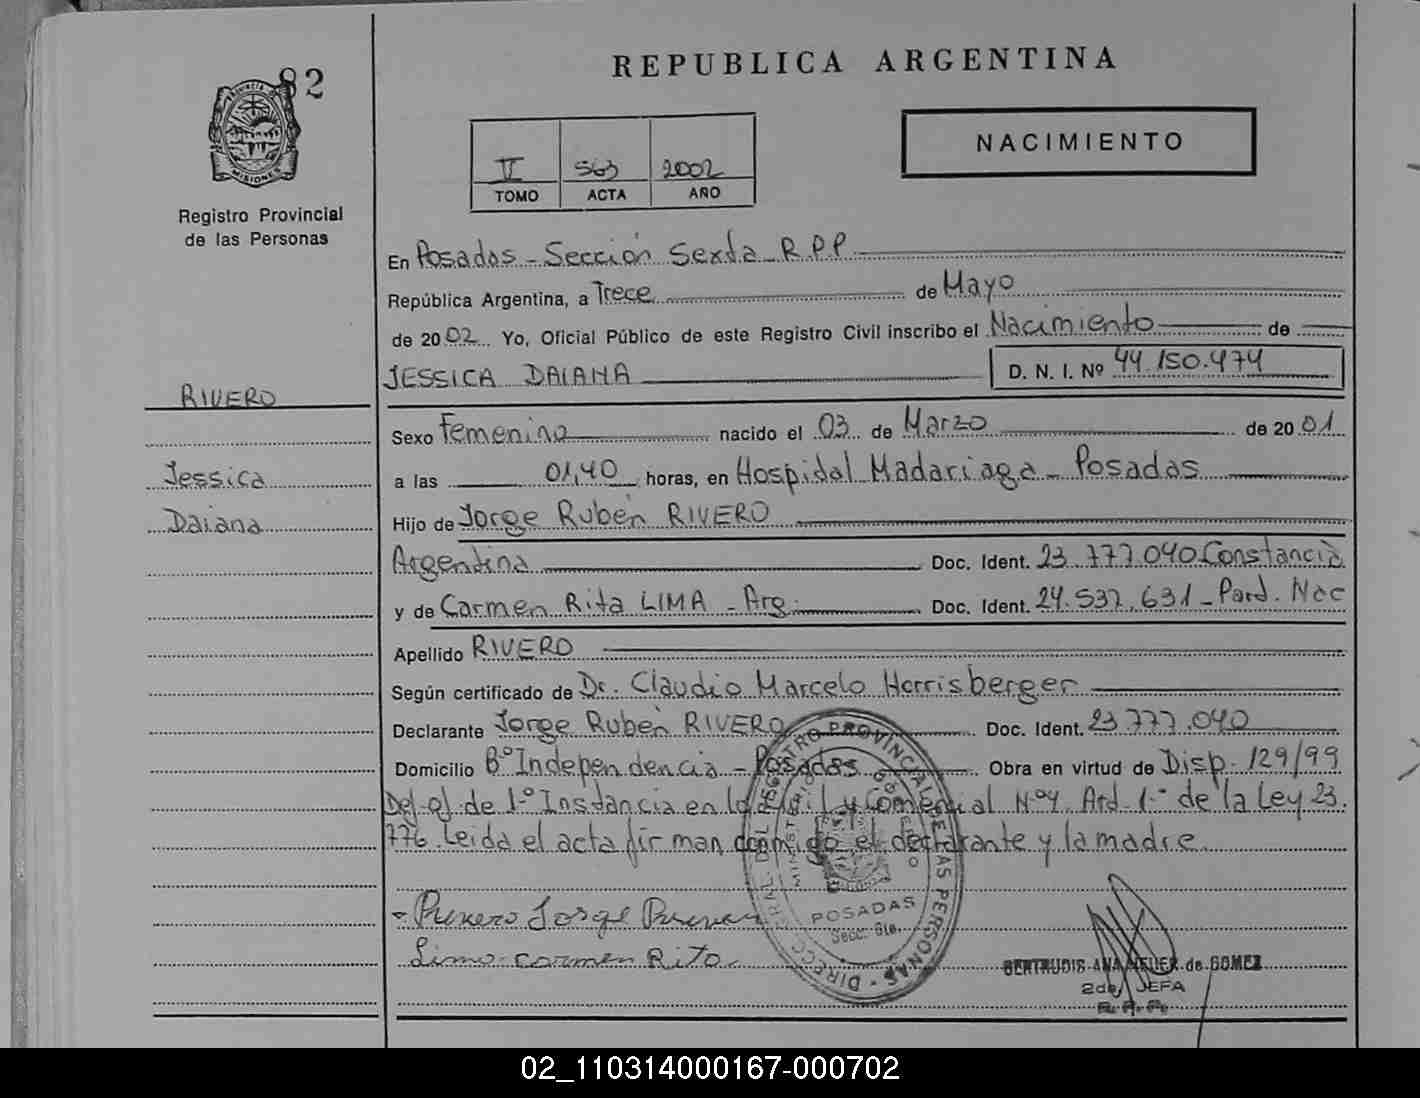 82
PROVINCIA DE
MISIONES
Registro Provincial
de las Personas
RIVERO
Jessica
Daiana
REPUBLICA ARGENTINA
II 563 2002
TOMO ACTA AÑO
NACIMIENTO
En Posadas - Sección Sexta - R.P.P
República Argentina, a Trece de Mayo
de 2002 Yo, Oficial Público de este Registro Civil inscribo el Nacimiento de
JESSICA DAIANA D. N. I. Nº 44.150.474
Sexo Femenino nacido el 03 de Marzo de 2001
a las 01,40 horas, en Hospital Madariaga - Posadas
Hijo de Jorge Rubén RIVERO
Argentina Doc. Ident. 23.777.040 Constancia
y de Carmen Rita LIMA - Arg. Doc. Ident. 24.537.631 - Part. Nac
Apellido RIVERO
Según certificado de Dr. Claudio Marcelo Horrisberger
Declarante Jorge Rubén RIVERO Doc. Ident. 23.777.040
Domicilio Bº Independencia - Posadas Obra en virtud de Disp. 129/99
Def. of. de 1º Instancia en lo Civil y Comercial Nº4 Art. 1º de la Ley 23.
776. Leida el acta firman conmigo el declarante y la madre.
Jorge
Lima Carmen Rita
DIRECC. GRAL. DEL REGISTRO PROVINCIAL DE LAS PERSONAS
MINISTERIO GOBIERNO
POSADAS
Secc. 6ta.
GERTRUDIS ANA de GOMEZ
2da. JEFA
R. P. P.
02_110314000167-000702